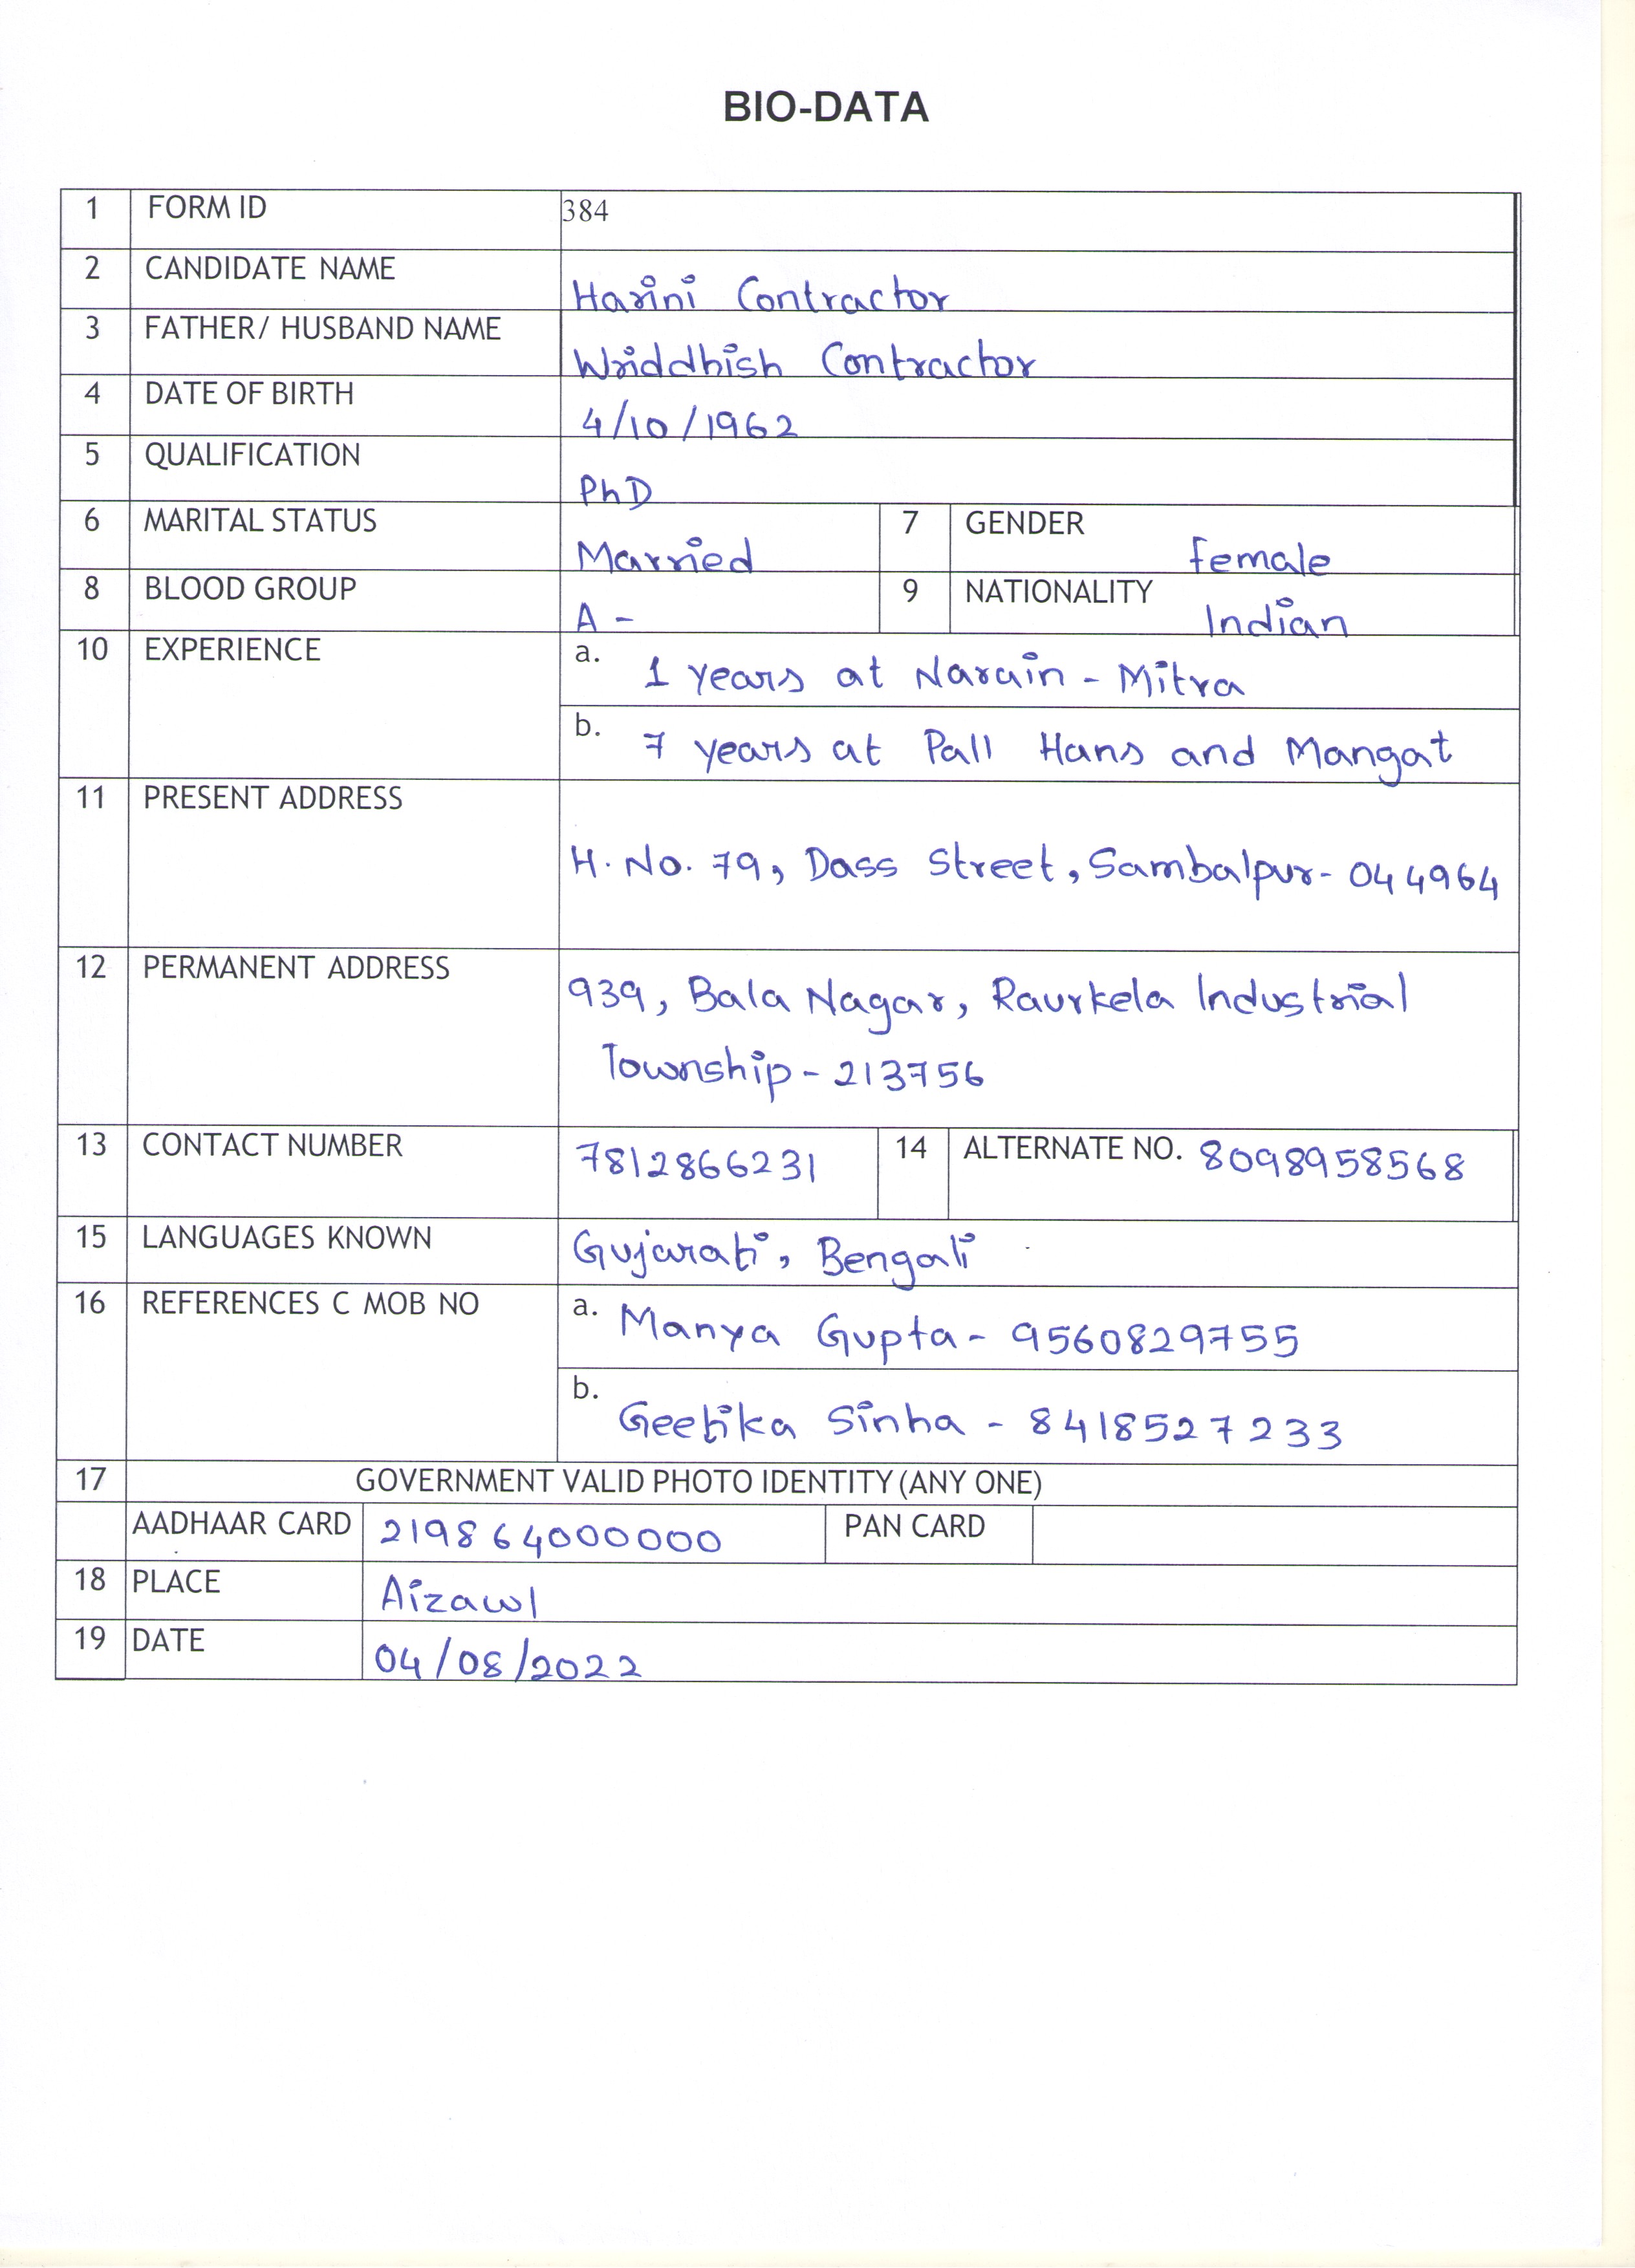 BIO-DATA
1 FORM ID 384
2 CANDIDATE NAME Harini Contractor
3 FATHER/ HUSBAND NAME Wriddhish Contractor
4 DATE OF BIRTH 4/10/1962
5 QUALIFICATION PhD
6 MARITAL STATUS Married 7 GENDER Female
8 BLOOD GROUP A - 9 NATIONALITY Indian
10 EXPERIENCE a. 1 years at Narain - Mitra
b. 7 years at Pall Hans and Mangat
11 PRESENT ADDRESS
H. No. 79, Dass Street, Sambalpur - 044964
12 PERMANENT ADDRESS 939, Bala Nagar, Raurkela Industrial
Township - 213756
13 CONTACT NUMBER 7812866231 14 ALTERNATE NO. 8098958568
15 LANGUAGES KNOWN Gujarati, Bengali
16 REFERENCES C MOB NO a. Manya Gupta - 9560829755
b. Geetika Sinha - 8418527233
17 GOVERNMENT VALID PHOTO IDENTITY (ANY ONE)
AADHAAR CARD 219864000000 PAN CARD
18 PLACE Aizawl
19 DATE 04/08/2022